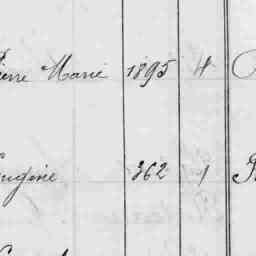 Pierre Marie 1895 4
Eugénie 362 1